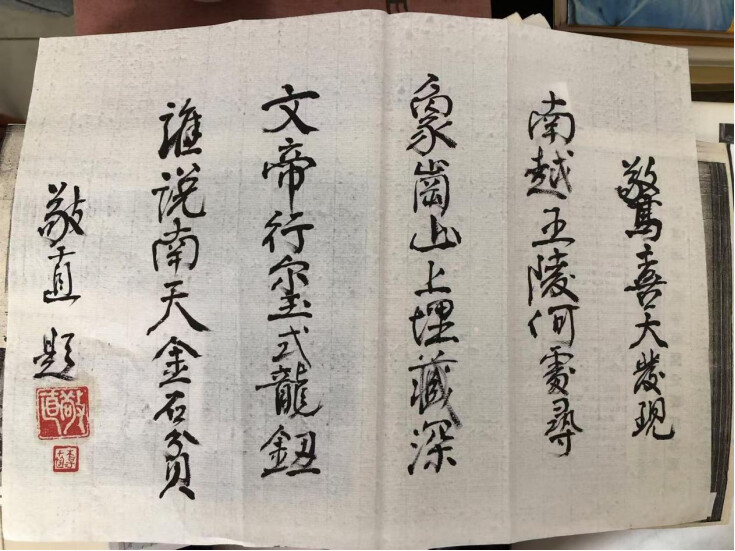 驚喜大發現
南越王陵何處尋
象崗山上埋藏深
文帝行玺式龍鈕
誰说南天金石貧
敬直 題
敬直